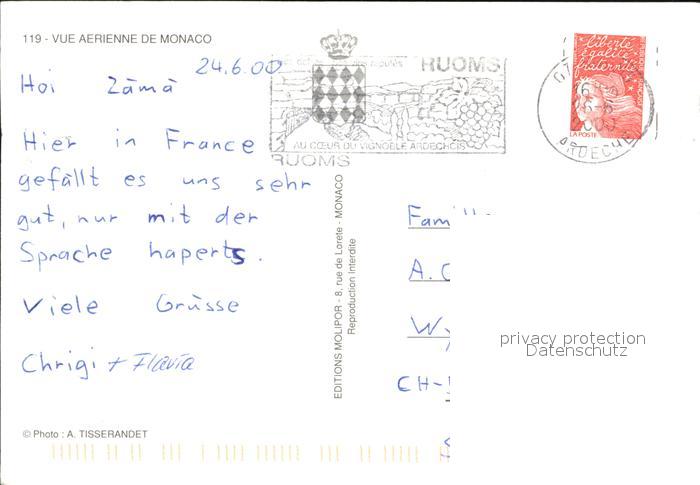 119 - VUE AERIENNE DE MONACO
24.6.00
Hoi Zämä
Hier in France
gefällt es uns sehr
gut, nur mit der
Sprache haperts.
Viele Grüsse
Chrigi + Flavia
© Photo : A. TISSERANDET
RUOMS
AU CŒUR DU VIGNOBLE ARDECHOIS
RUOMS
EDITIONS MOLIPOR - 8, rue de Lorete - MONACO
Reproduction Interdite
liberté
égalité
fraternité
LA POSTE
ARDECHE
Fami
A.
W
CH-
privacy protection
Datenschutz